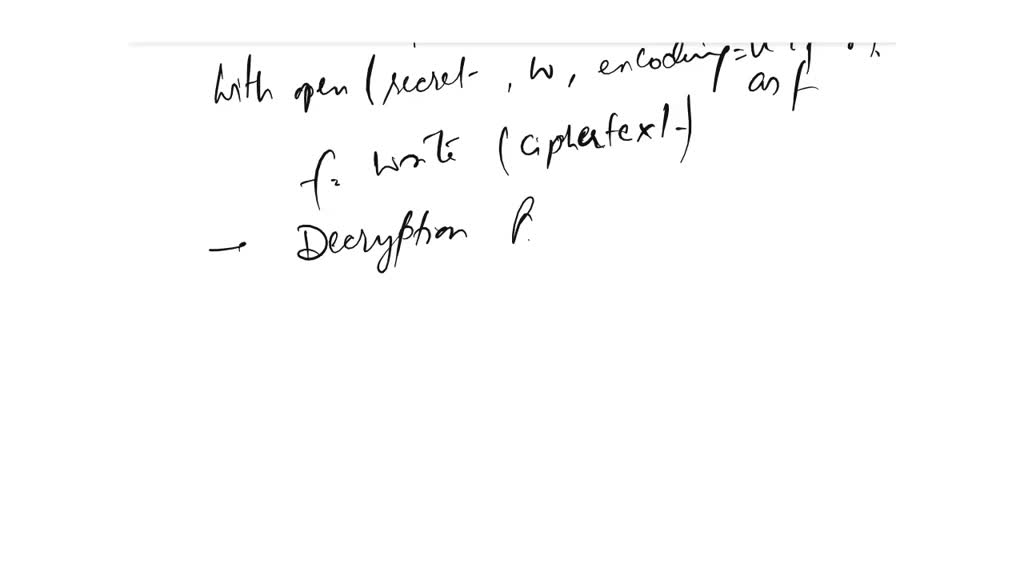 with open (secret , w, encoding=
as f
f. write (ciphertext)
→ Decryption P